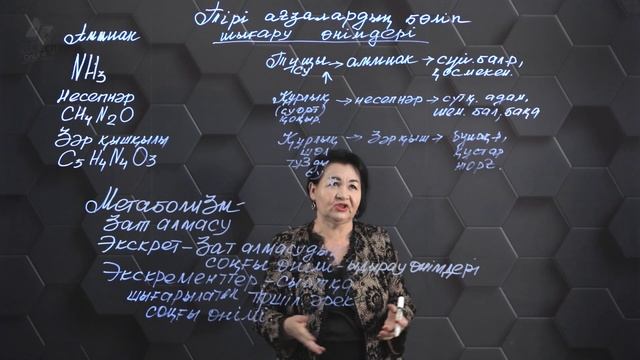 Тірі ағзалардың бөліп
шығару өнімдері
Аммиак
NH3
Несепнәр
CH4N2O
Зәр қышқылы
C5H4N4O3
Тұщы → аммиак → сүй. балқ,
су қосмекен.
Құрлық → несепнәр → сүтқ. адам,
шем. бал, бақа
Құрлық → Зәр қыш →
құстар
Метаболизм-
Зат алмасу
Экскрет-Зат алмасудың
соңғы өнімі-ыдырау өнімдері
Экскременттер-сыртқа
шығарылатын тіршіл. әрек
соңғы өнімі